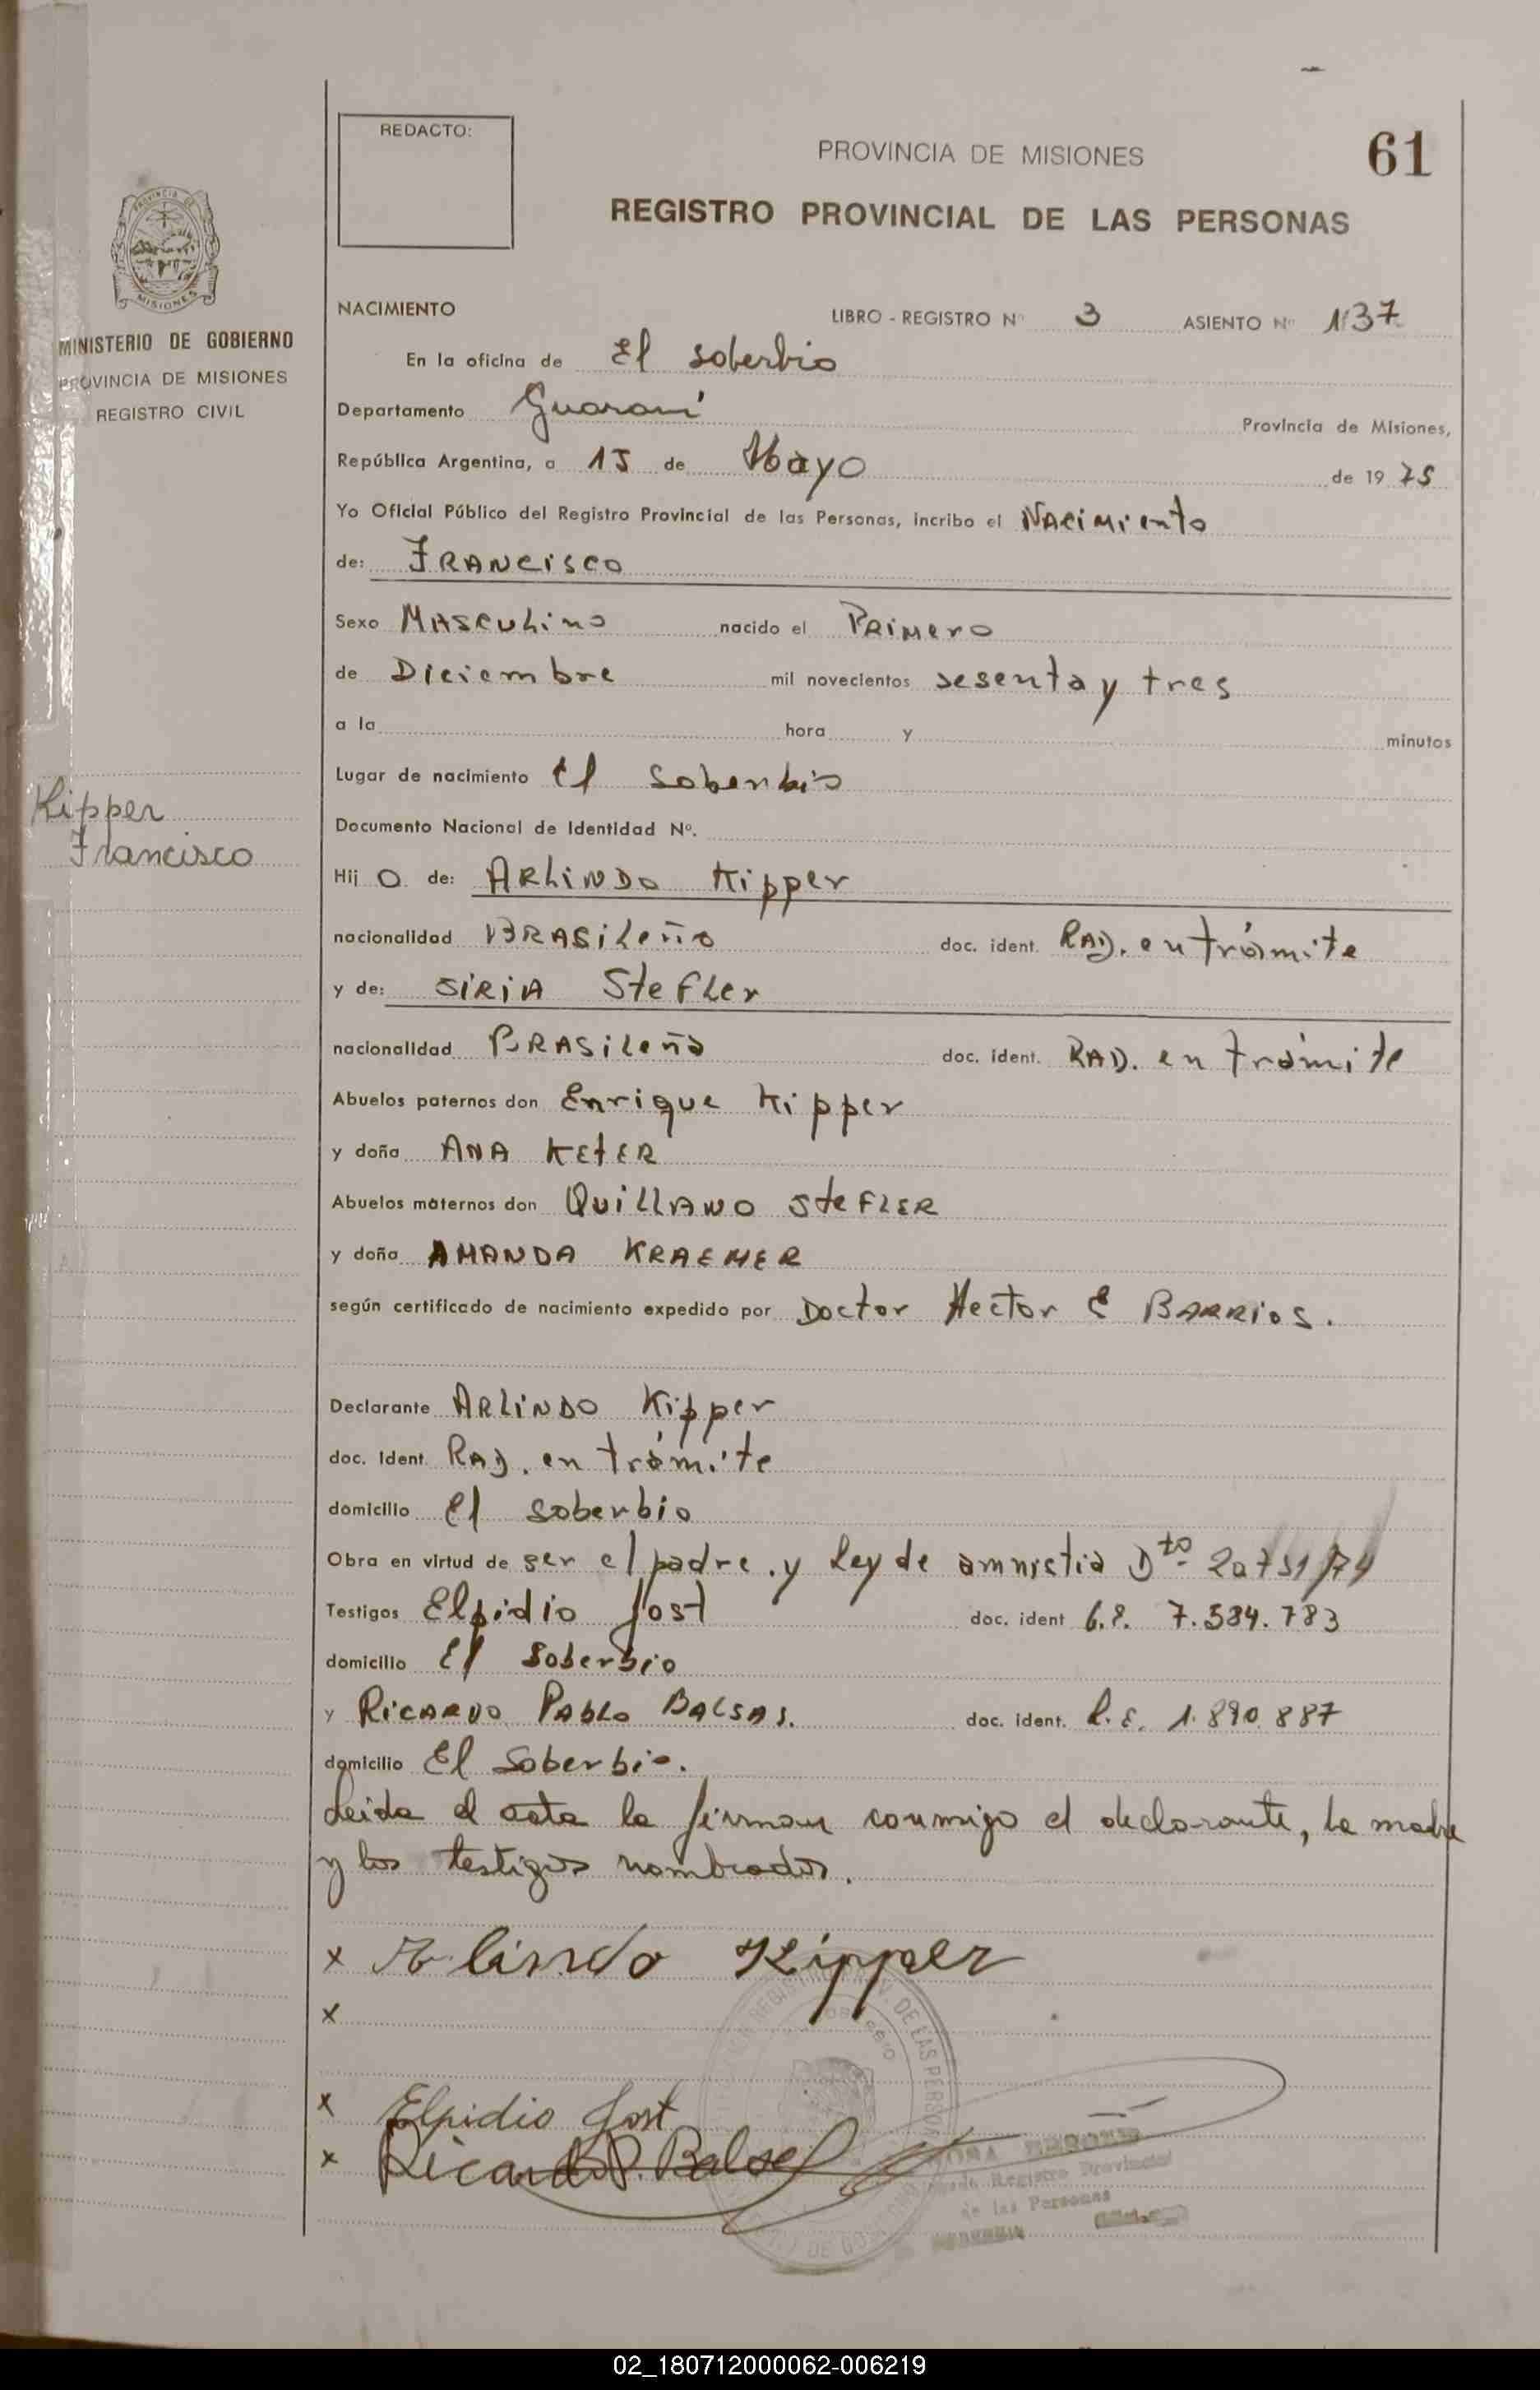 REDACTO:
PROVINCIA DE MISIONES
61
REGISTRO PROVINCIAL DE LAS PERSONAS
PROVINCIA DE
MISIONES
MINISTERIO DE GOBIERNO
PROVINCIA DE MISIONES
REGISTRO CIVIL
NACIMIENTO LIBRO - REGISTRO Nº 3 ASIENTO Nº 1137
En la oficina de El soberbio
Departamento Guaraní Provincia de Misiones,
República Argentina, a 15 de Mayo de 19 75
Yo Oficial Público del Registro Provincial de las Personas, incribo el NACIMIENTO
de: FRANCISCO
Sexo MASCULINO nacido el PRIMERO
de Diciembre mil novecientos sesenta y tres
a la hora y minutos
Lugar de nacimiento El Soberbio
Kipper
Francisco
Documento Nacional de Identidad Nº.
Hij O de: ARLINDO Kipper
nacionalidad BRASILEÑO doc. ident. RAD. en trámite
y de: SIRIA STEFLER
nacionalidad BRASILEÑA doc. ident. RAD. en trámite
Abuelos paternos don Enrique Kipper
y doña ANA KETER
Abuelos maternos don QUILLANO STEFLER
y doña AMANDA KRAEMER
según certificado de nacimiento expedido por Doctor Hector E BARRIOS.
Declarante ARLINDO Kipper
doc. Ident. RAD. en trámite
domicilio El soberbio
Obra en virtud de ser el padre. y Ley de amnistia Dto 20751/74
Testigos Elpidio Jost doc. ident 7.584.783
domicilio El Soberbio
y RICARDO PABLO BALSAS. doc. ident. L.E. 1.890.887
domicilio El Soberbio.
Leida el acta la firman conmigo el declarante, la madre
y los testigos nombrados.
x Arlindo Kipper
x
x Elpidio Jost
x Ricardo P. Balsa
Registro Provincial
de las Personas
02_180712000062-006219